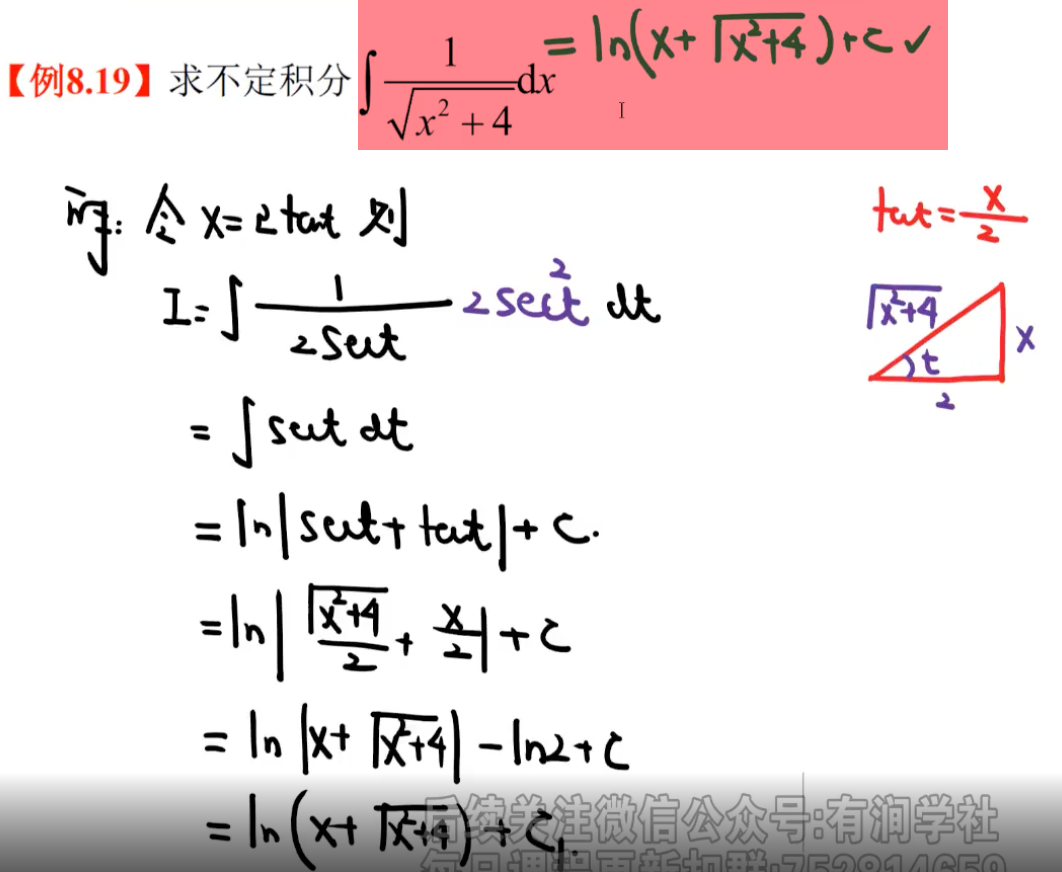 【例8.19】求不定积分 ∫ 1/√(x²+4) dx = ln(x+√(x²+4))+C ✓
解: 令 x=2tant 则
tant = x/2
I = ∫ 1/(2sect) 2sec²t dt
√(x²+4)
x
t
2
= ∫ sect dt
= ln|sect+tant|+C.
= ln|√(x²+4)/2 + x/2|+C
= ln|x+√(x²+4)|-ln2+C
= ln(x+√(x²+4))+C₁.
后续关注微信公众号:有润学社
每日课程更新扣群:752814659